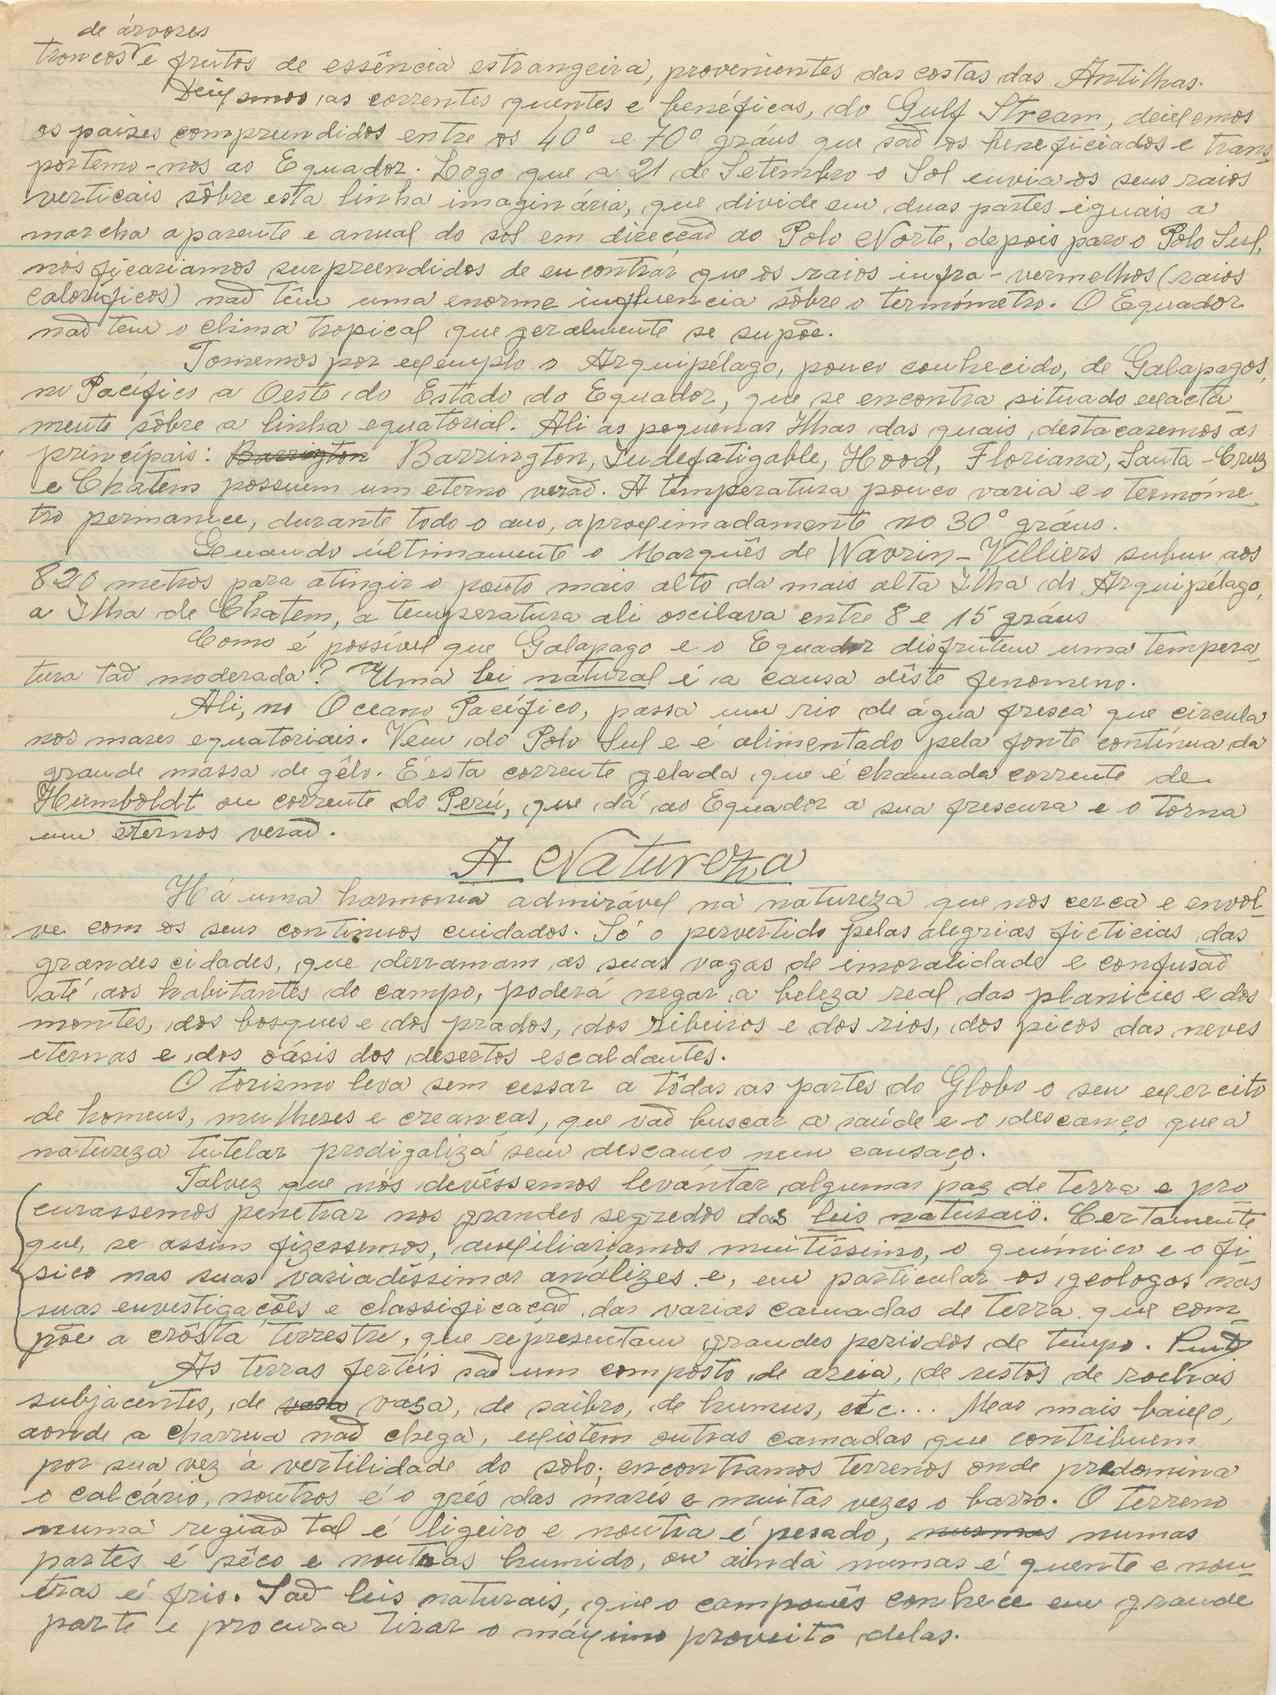 de árvores
troncos e frutos de essência estrangeira, provenientes das costas das Antilhas.
Deixemos as correntes quentes e benéficas, do Gulf Stream, deixemos
os países compreendidos entre os 40° e 70° gráus que são os beneficiados e trans-
portemo-nos ao Equador. Logo que a 21 de Setembro o Sol envia os seus raios
verticais sôbre esta linha imaginária, que divide em duas partes iguais a
marcha aparente e anual do sol em direcção ao Polo Norte, depois para o Polo Sul,
nós ficariamos surpreendidos de encontrar que os raios infra-vermelhos (raios
caloríficos) não têm uma enorme influencia sôbre o termómetro. O Equador
não tem o clima tropical que geralmente se supõe.
Tomemos por exemplo o Arquipélago, pouco conhecido, de Galapagos,
no Pacífico a Oeste do Estado do Equador, que se encontra situado exacta-
mente sôbre a linha equatorial. Ali as pequenas Ilhas das quais destacaremos as
principais: Barrington Barrington, Indefatigable, Hood, Floriana, Santa-Cruz
e Chatem possuem um eterno verão. A temperatura pouco varia e o termóme-
tro permanece, durante todo o ano, aproximadamente no 30° gráus.
Quando últimamente o Marquês de Wavrin-Villiers subiu aos
820 metros para atingir o ponto mais alto da mais alta Ilha do Arquipélago,
a Ilha de Chatem, a temperatura ali oscilava entre 8 e 15 gráus
Como é possível que Galapago e o Equador disfrutem uma tempera-
tura tão moderada? Uma lei natural é a causa dêste fenomeno.
Ali, no Oceano Pacífico, passa um rio de água fresca que circula
nos mares equatoriais. Vem do Polo Sul e é alimentado pela fonte contínua da
grande massa de gêlo. É esta corrente gelada que é chamada corrente de
Humboldt ou corrente do Perú, que dá ao Equador a sua frescura e o torna
um eternos verão.
A Natureza
Há uma harmonia admirável na natureza que nos cerca e envol-
ve com os seus continuos cuidados. Só o pervertido pelas alegrias ficticias das
grandes cidades, que derramam as suas vagas de imoralidade e confusão
até aos habitantes do campo, poderá negar a beleza real das planicies e dos
montes, dos bosques e dos prados, dos ribeiros e dos rios, dos picos das neves
eternas e dos oásis dos desertos escaldantes.
O torismo leva sem cessar a tôdas as partes do Globo o seu exercito
de homens, mulheres e creanças, que vão buscar a saúde e o descanço que a
natureza tutelar prodigaliza sem descanço nem cansaço.
Talvez que nós devêssemos levantar algumas paz de terra e pro
curassemos penetrar nos grandes segredos das leis naturais. Certamente
que, se assim fizessemos, auxiliariamos muitíssimo, o químico e o fi-
sico nas suas variadíssimas análizes e, em particular os geologos nas
suas envestigações e classificação das varias camadas de terra que com-
põe a crôsta terrestre, que representam grandes periodos de tempo.
As terras fertéis são um composto de areia, de restos de rochas
subjacentes, de vasa vasa, de saibro, de humus, etc... Mas mais baixo,
aonde a charrua não chega, existem outras camadas que contribuem
por sua vez à vertilidade do solo; encontramos terrenos onde predomina
o calcário, noutros é o grés das marés e muitas vezes o barro. O terreno
numa região tal é ligeiro e noutra é pesado, numas numas
partes é sêco e noutras humido, ou ainda numas é quente e nou-
tras é frio. São leis naturais, que o camponês conhece em grande
parte e procura tirar o máximo proveito delas.